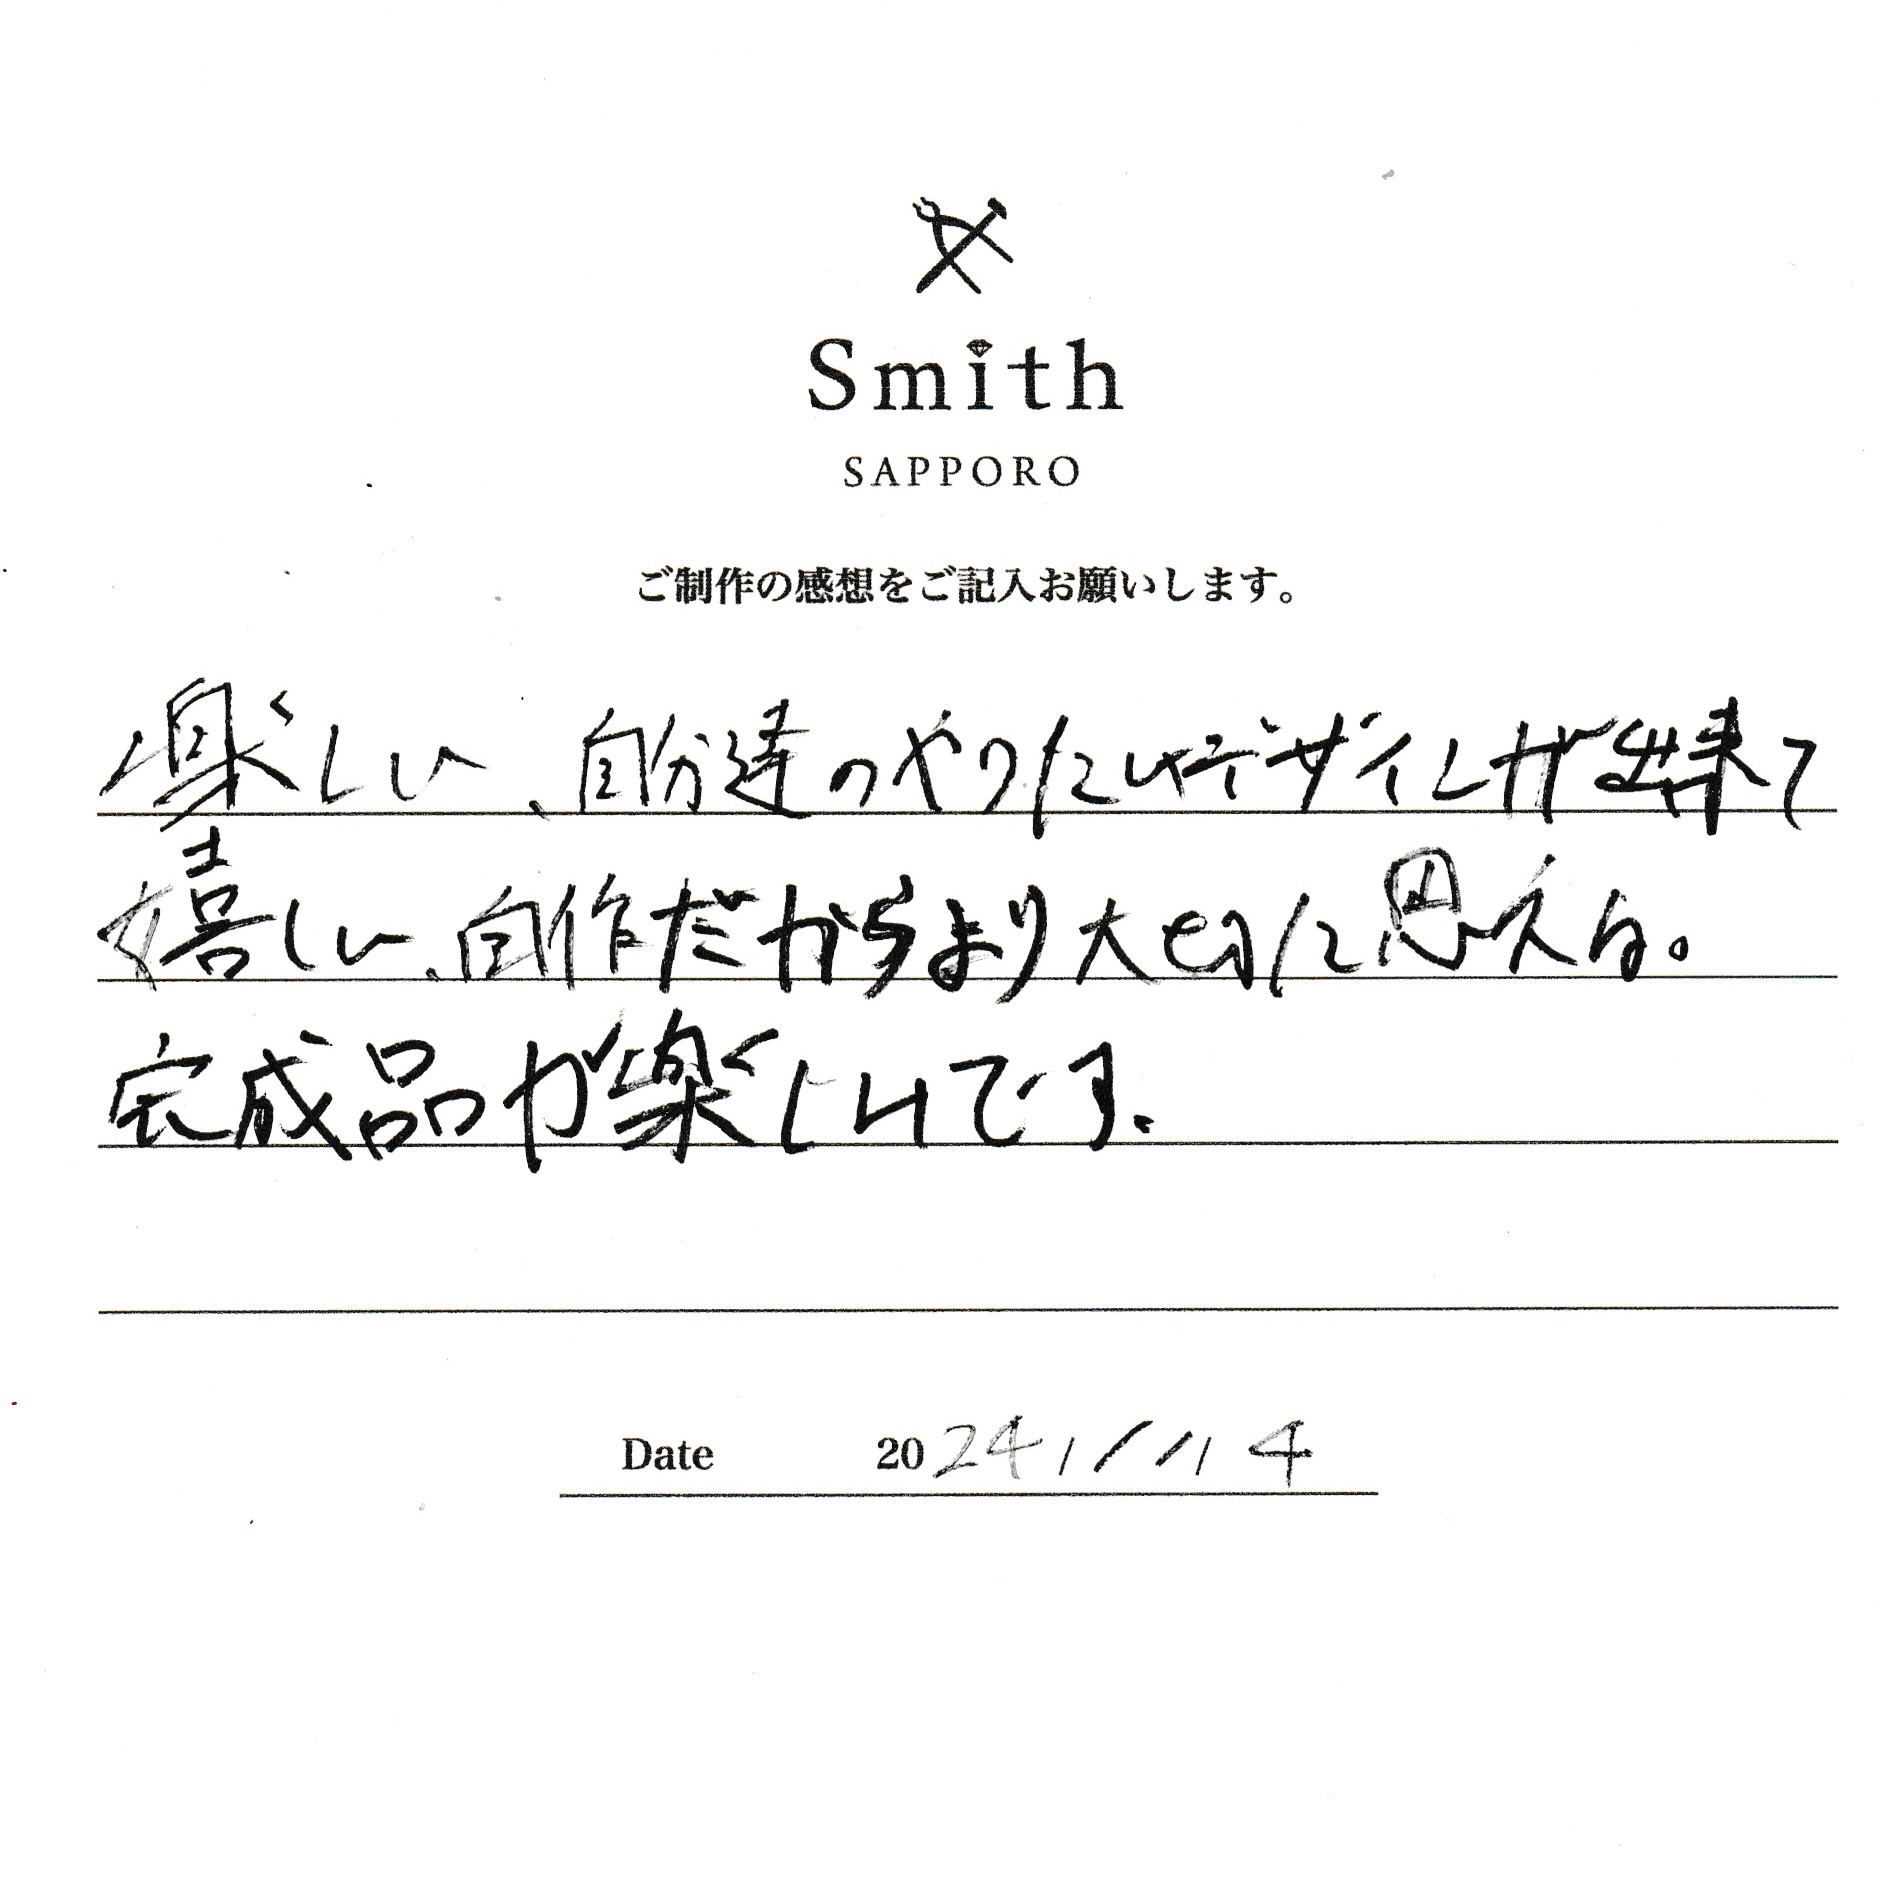 Smith
SAPPORO
ご制作の感想をご記入お願いします。
楽しい、自分達のやりたいデザインが出来て
嬉しい、自作だからより大切に思える。
完成品が楽しいです、
Date 2024 1 / 11 4